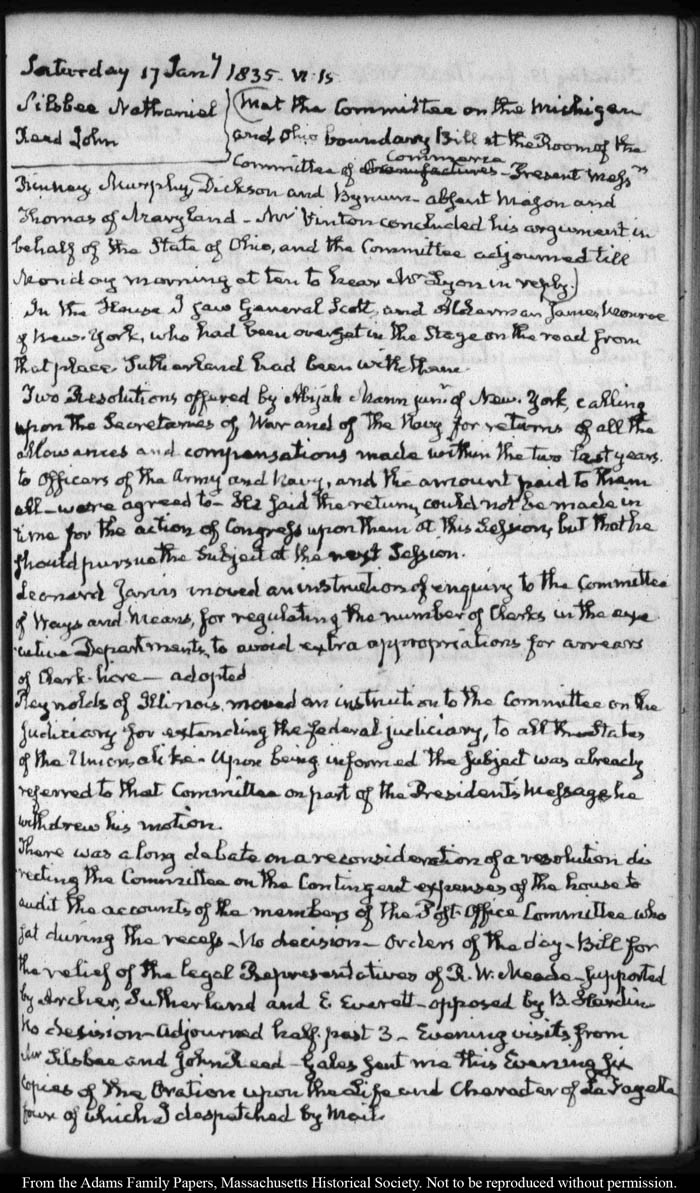 Saturday 17 Jany 1835. VI.15
Silsbee Nathaniel
Read John
(Met the Committee on the Michigan
and Ohio boundary Bill at the Room of the
Committee of Manufactures Commerce - Present Messrs
Kinnay, Murphy, Dickson and Bynum - absent Mason and
Thomas of Maryland - Mr Vinton concluded his argument in
behalf of the State of Ohio, and the Committee adjourned till
Monday morning at ten to hear Mr Lyon in reply.)
In the House I saw General Scott, and Alderman James Monroe
of New-York, who had been overset in the Stage on the road from
that place. Sutherland had been with them.
Two Resolutions offered by Abijah Mann junr. of New-York, calling
upon the Secretaries of War and of the Navy for returns of all the
allowances and compensations made within the two last years
to Officers of the Army and Navy, and the amount paid to them
all - were agreed to - He said the return could not be made in
time for the action of Congress upon them at this Session, but that he
should pursue the subject at the next Session.
Leonard Jarvis moved an instruction of enquiry to the Committee
of Ways and Means, for regulating the number of Clerks in the exe
cutive Departments, to avoid extra appropriations for arrears
of Clerk-hire - adopted
Reynolds of Illinois, moved an instruction to the Committee on the
Judiciary for extending the federal judiciary, to all the States
of the Union, alike - Upon being informed the subject was already
referred to that Committee on part of the President's Message, he
withdrew his motion.
There was a long debate on a reconsideration of a resolution di
recting the Committee on the Contingent expenses of the house to
audit the accounts of the members of the Post-Office Committee who
sat during the recess - No decision - Orders of the day - Bill for
the relief of the legal Representatives of R. W. Meade - supported
by Archer, Sutherland and E. Everett - opposed by B. Hardin
No decision - Adjourned half past 3 - Evening visits from
Mr Silsbee and John Read - Gales sent me this Evening six
copies of the Oration upon the Life and Character of La Fayette
four of which I despatched by Mail.
From the Adams Family Papers, Massachusetts Historical Society. Not to be reproduced without permission.